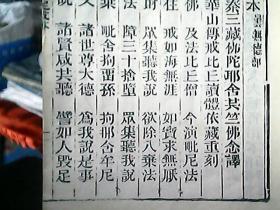 本 曇無德部
秦三藏佛陀耶舍共竺佛念譯
華山傳戒比丘讀體依藏重刻
佛 及法比丘僧 今演毗尼法
住 戒如海無涯 如寶求無厭
財 眾集聽我說 欲除八棄法
法 障三十捨墮 眾集聽我說
棄 毗舍拘留孫 拘那含牟尼
文 諸世尊大德 為我說是事
說 諸賢咸共聽 譬如人毀足